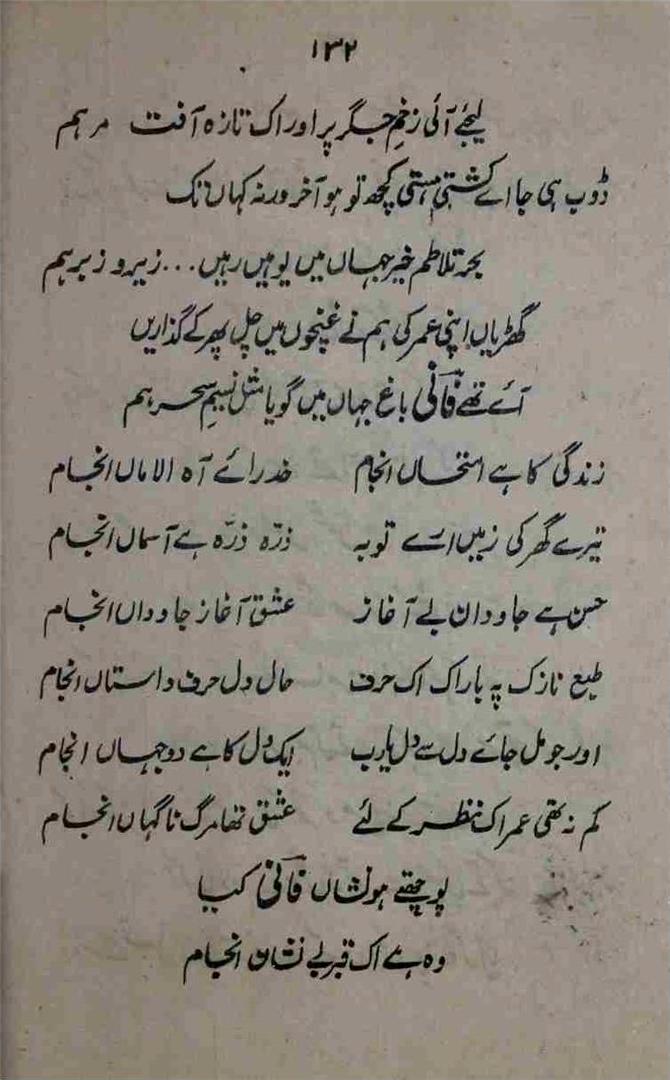 ۱۳۲
لیجئے آئی زخمِ جگر پر اور اک تازہ آفت مرہم
ڈوب ہی جا اے کشتیِ ہستی کچھ تو ہو آخر ورنہ کہاں تک
بحر تلاطم خیز جہاں میں یوہیں رہیں... زیر و زبر ہم
گھڑیاں اپنی عمر کی ہم نے غنچوں میں چل پھر کے گذاریں
آئے تھے فانیؔ باغ جہاں میں گویا مثل نسیمِ سحر ہم
زندگی کا ہے امتحاں انجام خدرائے آہ الاماں انجام
تیرے گھر کی زمیں ارے توبہ ذرّہ ذرّہ ہے آسماں انجام
حسن ہے جاودان بے آغاز عشق آغاز جاوداں انجام
طبع نازک پہ بار اک اک حرف حال دل حرف داستاں انجام
اور جو مل جائے دل سے دل یارب ایک دل کا ہے دو جہاں انجام
کم نہ تھی عمر اک نظر کے لئے عشق تھا مرگ ناگہاں انجام
پوچھتے ہو نشاں فانیؔ کیا
وہ ہے اک قبر بے نشان انجام